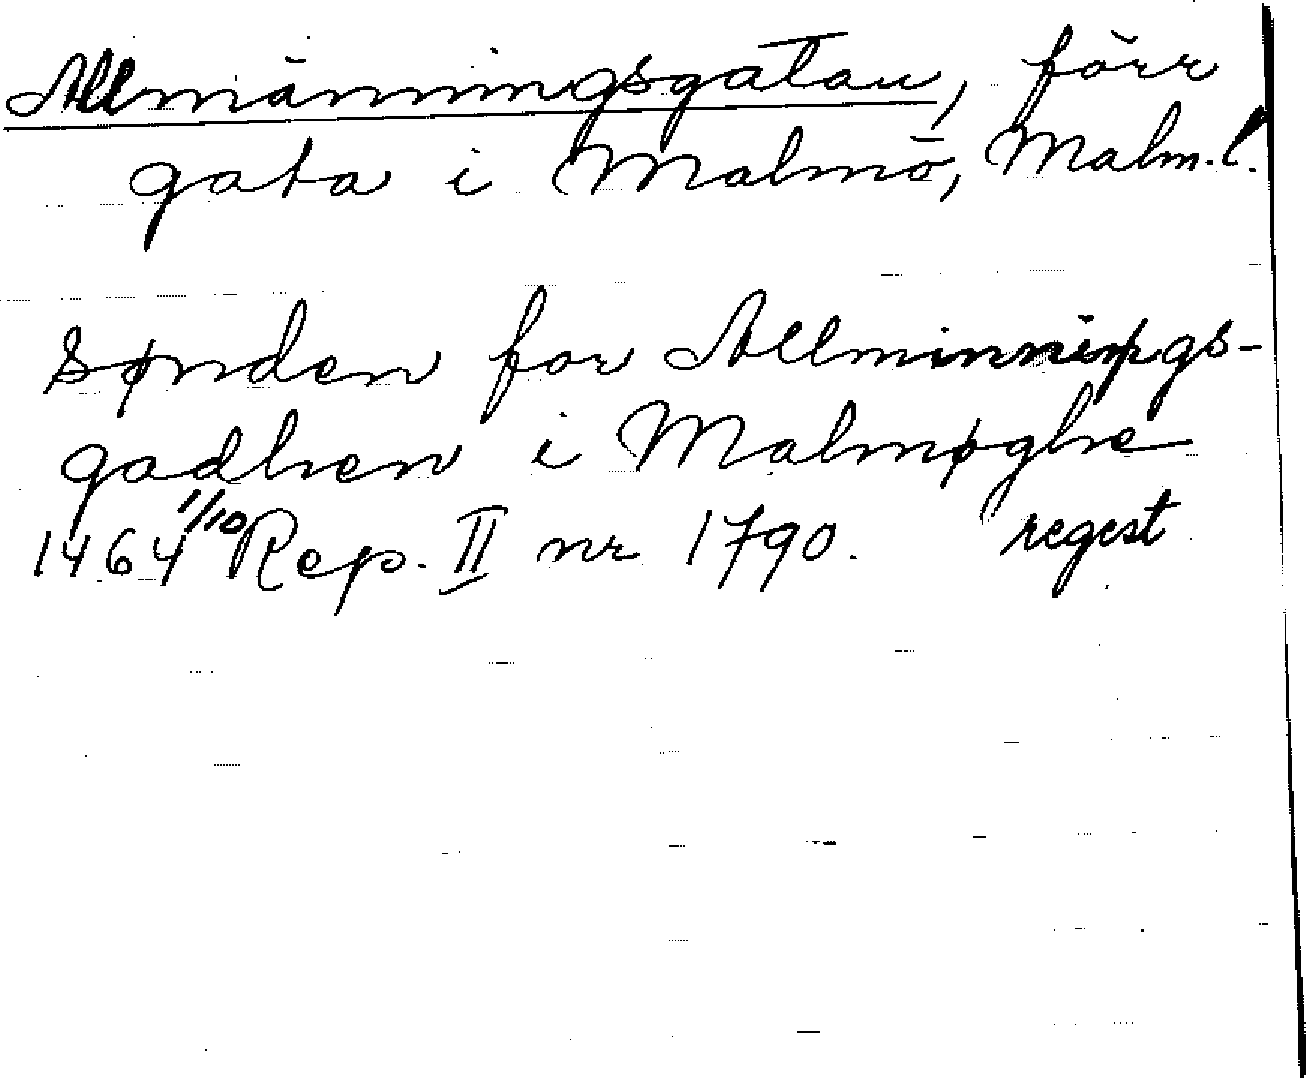 Allmänningsgatan, förr
gata i Malmö, Malm.l.
Sønden for Allminnings-
gadhen i Malmøghe
1464 1/10 Rep. II nr 1790. regest